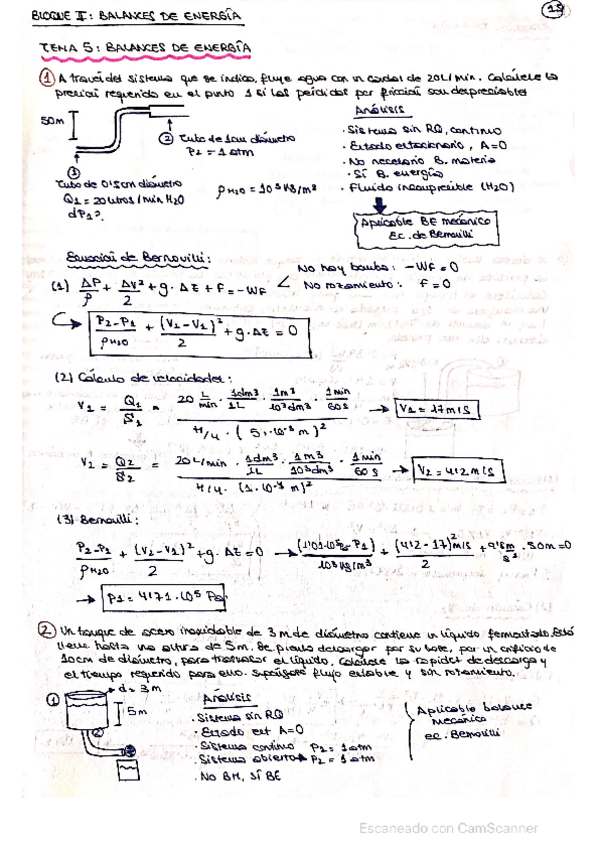 BLOQUE II: BALANCES DE ENERGÍA
TEMA 5: BALANCES DE ENERGÍA
1 A través del sistema que se indica, fluye agua con un caudal de 20L/min. Calcúlese la
presión requerida en el punto 1 si las pérdidas por fricción son despreciables
50m
② Tubo de 1cm diámetro
P2 = 1 atm
①
Tubo de 0'5cm diámetro
Q1 = 20 litros/min H2O
d P1?
ρH2O = 10³ kg/m³
Análisis
· Sistema sin RQ, continuo
· Estado estacionario, A=0
· No necesario B. materia
· Sí B. energía
· Fluido incompresible (H2O)
Aplicable BE mecánico
Ec. de Bernouilli
Ecuación de Bernouilli:
(1) ΔP/ρ + ΔV²/2 + g · ΔZ + F = -WF
No hay bomba: -WF = 0
No rozamiento: F = 0
P2-P1/ρH2O + (V2-V1)²/2 + g·ΔZ = 0
(2) Cálculo de velocidades:
V1 = Q1/S1 = 20 L/min · 1dm³/1L · 1m³/10³dm³ · 1min/60s / π/4 · (5·10⁻³ m)² → V1 = 17m/s
V2 = Q2/S2 = 20L/min · 1dm³/1L · 1m³/10³dm³ · 1min/60s / π/4 · (1·10⁻² m)² → V2 = 4'2m/s
(3) Bernouilli:
P2-P1/ρH2O + (V2-V1)²/2 + g·ΔZ = 0 → (1'01·10⁵Pa-P1)/10³kg/m³ + (4'2-17)²m/s/2 + 9'8m/s² · 50m = 0
→ P1 = 4'71·10⁵ Pa
2 Un tanque de acero inoxidable de 3 m de diámetro contiene un líquido fermentado. Está
lleno hasta una altura de 5m. Se piensa descargar por su base, por un orificio de
10cm de diámetro, para trasvasar el líquido. Calcúlese la rapidez de descarga y
el tiempo requerido para ello. Supóngase flujo estable y sin rozamiento.
①
d = 3m
5m
②
Análisis
· Sistema sin RQ
· Estado est A=0
· Sistema continuo P1 = 1 atm
· Sistema abierto P2 = 1 atm
· No BM, Sí BE
Aplicable balance
mecánico
ec. Bernouilli
Escaneado con CamScanner